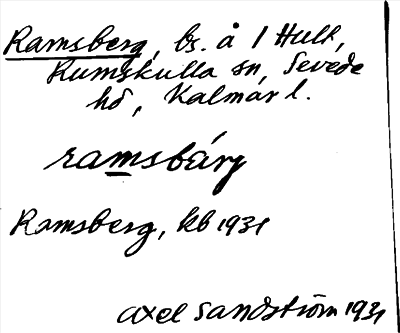 Ramsberg, bs. å 1 Hult,
Rumskulla sn, Sevede
hd, Kalmar l.
ramsbárg
Ramsberg, kb 1931
Axel Sandström 1931